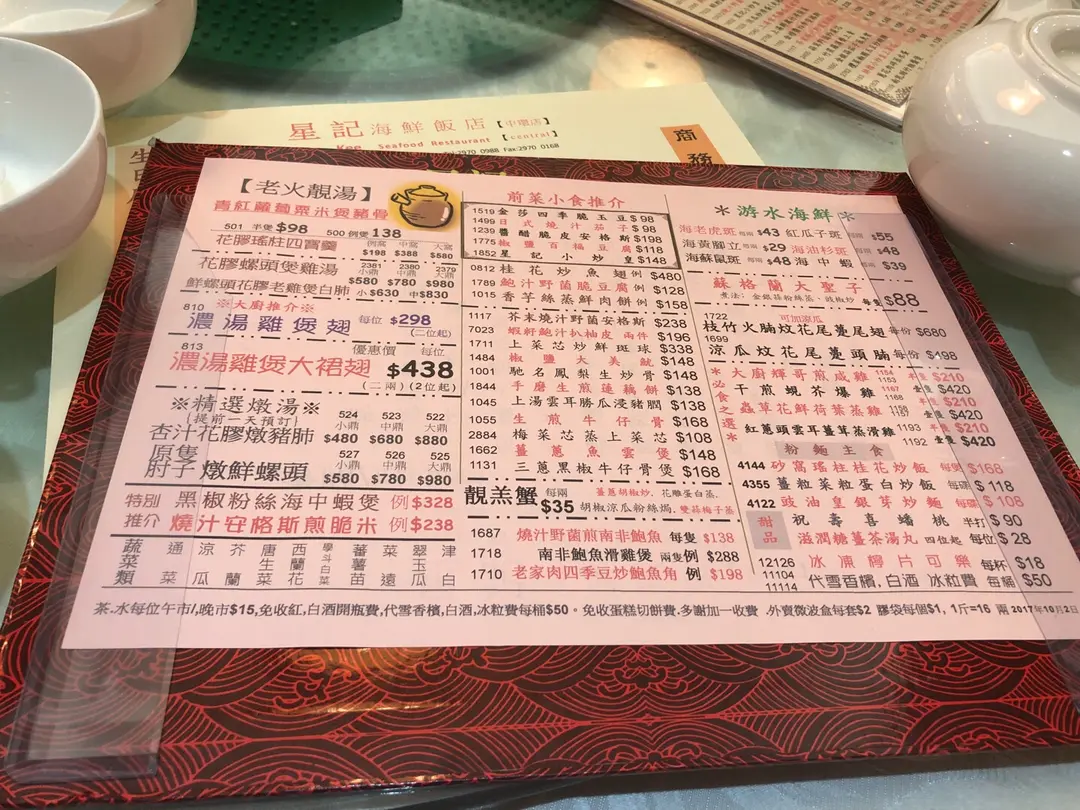 星記海鮮飯店【中環店】
Kee Seafood Restaurant 【central】
2970 0988 Fax:2970 0168
商務
【老火靚湯】
青紅蘿蔔粟米煲豬骨
501 半煲 $98 500 例窩 138
花膠瑤柱四寶羹 例窩 $198 中窩 $388 大窩 $580
花膠螺頭煲雞湯 2381 小鼎 $580 2380 中鼎 $780 2379 大鼎 $980
鮮螺頭花膠老雞煲白肺 小$630 中$830
810 ※大廚推介※
濃湯雞煲翅 每位 $298
(二位起)
813 優惠價 每位
濃湯雞煲大裙翅 $438
(二兩)(2位起)
※精選燉湯※
(提前一天預訂)
杏汁花膠燉豬肺 524 小鼎 $480 523 中鼎 $680 522 大鼎 $880
原隻
肘子燉鮮螺頭 527 小鼎 $580 526 中鼎 $780 525 大鼎 $980
特別推介 黑椒粉絲海中蝦煲 例$328
燒汁安格斯煎脆米 例$238
蔬菜類 通菜 涼瓜 芥蘭 唐生菜 西蘭花 學斗白菜 蕃薯苗 菠菜 翠玉瓜 津白
前菜小食推介
1519 金莎四季脆玉豆 $98
1499 日式燒汁茄子 $98
1239 醬醋脆皮安格斯 $198
1775 椒鹽百福豆腐 $118
1852 星記小炒皇 $148
0812 桂花炒魚翅 例 $480
1789 鮑汁野菌脆豆腐 例 $128
1015 香芋絲蒸鮮肉餅 例 $158
1117 芥末燒汁野菌安格斯 $238
7023 蝦籽鮑汁扒柚皮 兩件 $196
1711 上菜芯炒鮮斑球 $338
1484 椒鹽大美魷 $148
1001 馳名鳳梨生炒骨 $148
1844 手磨生煎蓮藕餅 $138
1045 上湯雲耳勝瓜浸豬膶 $138
1055 生煎牛仔骨 $168
2884 梅菜芯蒸上菜芯 $108
1662 薑蔥魚雲煲 $148
1131 三蔥黑椒牛仔骨煲 $168
靚羔蟹 每兩 $35 薑蔥胡椒炒, 花雕蛋白蒸,
胡椒涼瓜粉絲焗, 雙蒜梅子蒸
1687 燒汁野菌煎南非鮑魚 每隻 $138
1718 南非鮑魚滑雞煲 兩隻例 $288
1710 老家肉四季豆炒鮑魚角 例 $198
＊游水海鮮＊
海老虎斑 每兩 $43 紅瓜子斑 每兩 $55
海黃腳立 每兩 $29 海油杉斑 每兩 $48
海蘇鼠斑 每兩 $48 海中蝦 每兩 $39
蘇格蘭大聖子
煮法: 金銀蒜粉絲蒸、豉椒炒 每隻 $88
1722 可加涼瓜
枝竹火腩炆花尾躉尾翅 每份 $680
1699
涼瓜炆花尾躉頭腩 每份 $198
＊必食之選＊
大廚輝哥煎咸雞 1154 半隻 $210
1153 壹隻 $420
干煎蜆芥爆雞 1167 半隻 $210
1168 壹隻 $420
蟲草花鮮荷葉蒸雞
紅蔥頭雲耳薑茸蒸滑雞 1193 半隻 $210
1192 壹隻 $420
粉麵主食
4144 砂窩瑤柱桂花炒飯 每煲 $168
4355 薑粒菜粒蛋白炒飯 每碟 $118
4122 豉油皇銀芽炒麵 每碟 $108
甜品 祝壽喜蟠桃 半打 $90
滋潤糖薑茶湯丸 四位起 每位 $28
12126 冰凍檸片可樂 每杯 $18
11104
11114 代雪香檳,白酒 冰粒費 每桶 $50
茶.水每位午市/,晚市$15,免收紅,白酒開瓶費,代雪香檳,白酒,冰粒費每桶$50。免收蛋糕切餅費.多謝加一收費 .外賣微波盒每套$2 膠袋每個$1, 1斤=16 兩 2017年10月2日